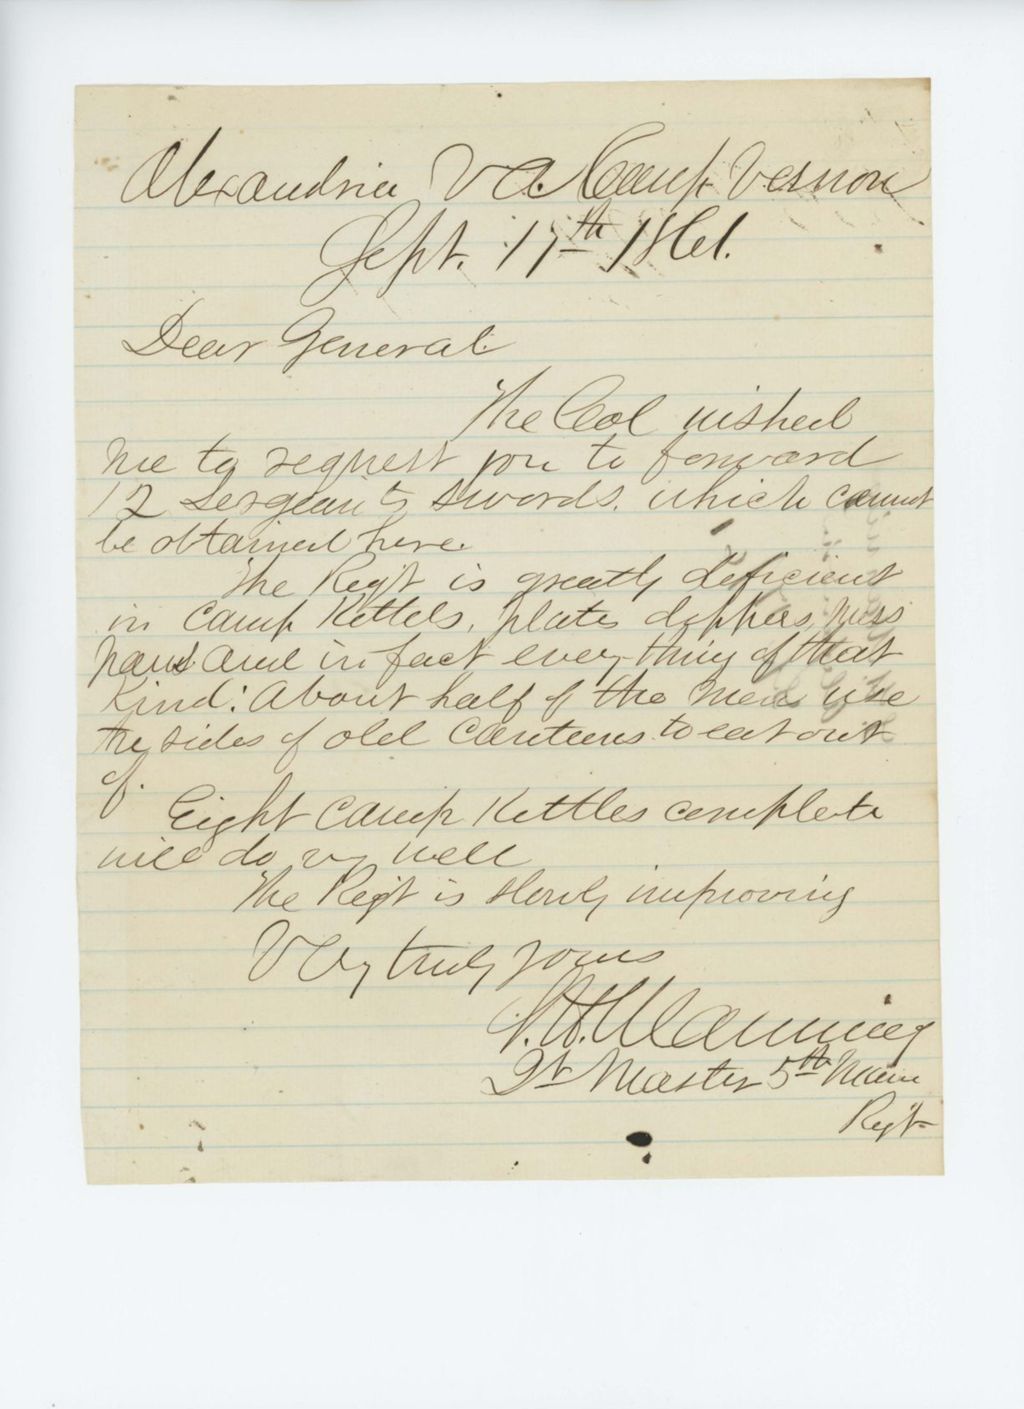 Alexandria Va. Camp Vernon
Sept. 17th 1861.
Dear General
The Col wished
me to request you to forward
12 Sergeants swords. which cannot
be obtained here.
The Reg't is greatly deficient
in Camp Kettels, plates dippers, mess
pans and in fact every thing of that
Kind: About half of the men use
the sides of old Canteens to eat out
of.
Eight Camp Kettles complete
will do very well
The Regt is slowly improving
Very truly yours
S.H. Manning
Qt Master 5th Maine
Reg't